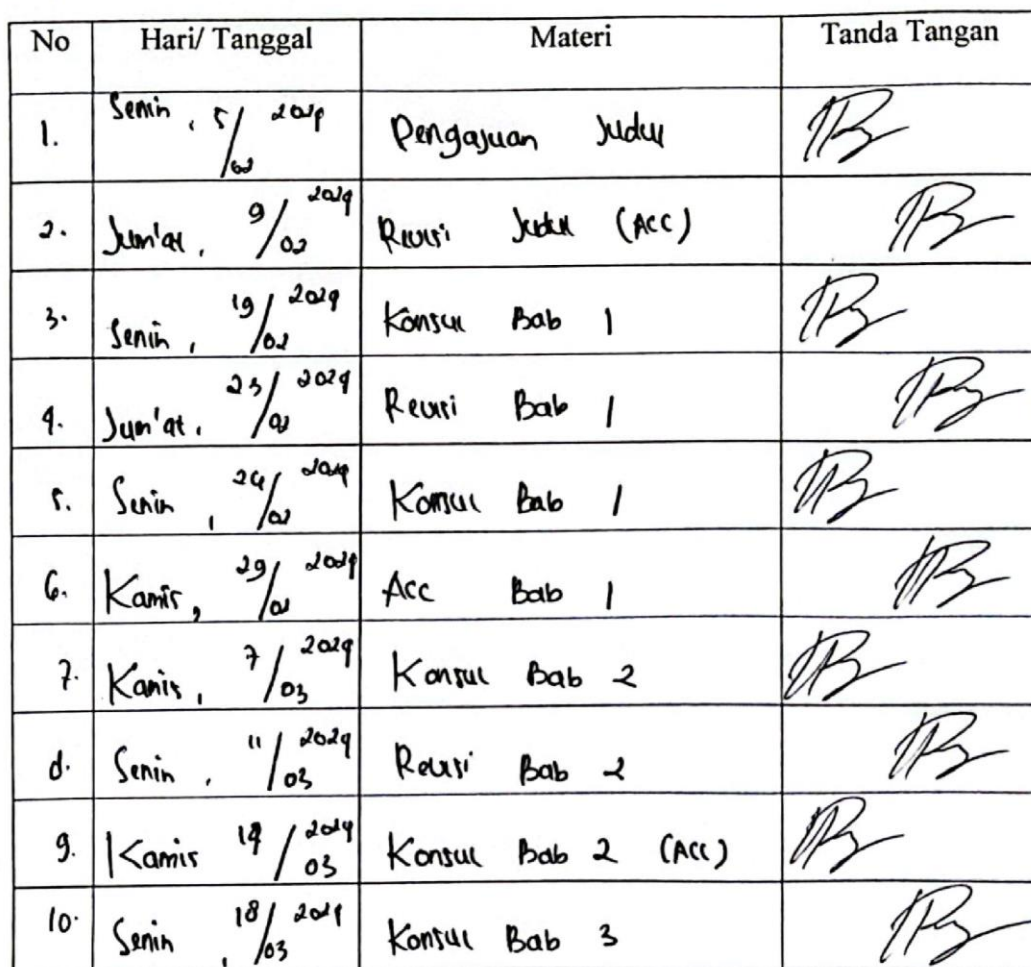 No Hari/ Tanggal Materi Tanda Tangan
1. Senin, 5/02 2024 Pengajuan Judul
2. Jum'at, 9/02 2024 Revisi Judul (ACC)
3. Senin, 19/02 2024 Konsul Bab 1
4. Jum'at, 23/02 2024 Revisi Bab 1
5. Senin, 26/02 2024 Konsul Bab 1
6. Kamis, 29/02 2024 Acc Bab 1
7. Kamis, 7/03 2024 Konsul Bab 2
8. Senin, 11/03 2024 Revisi Bab 2
9. Kamis 14/03 2024 Konsul Bab 2 (Acc)
10. Senin, 18/03 2024 Konsul Bab 3